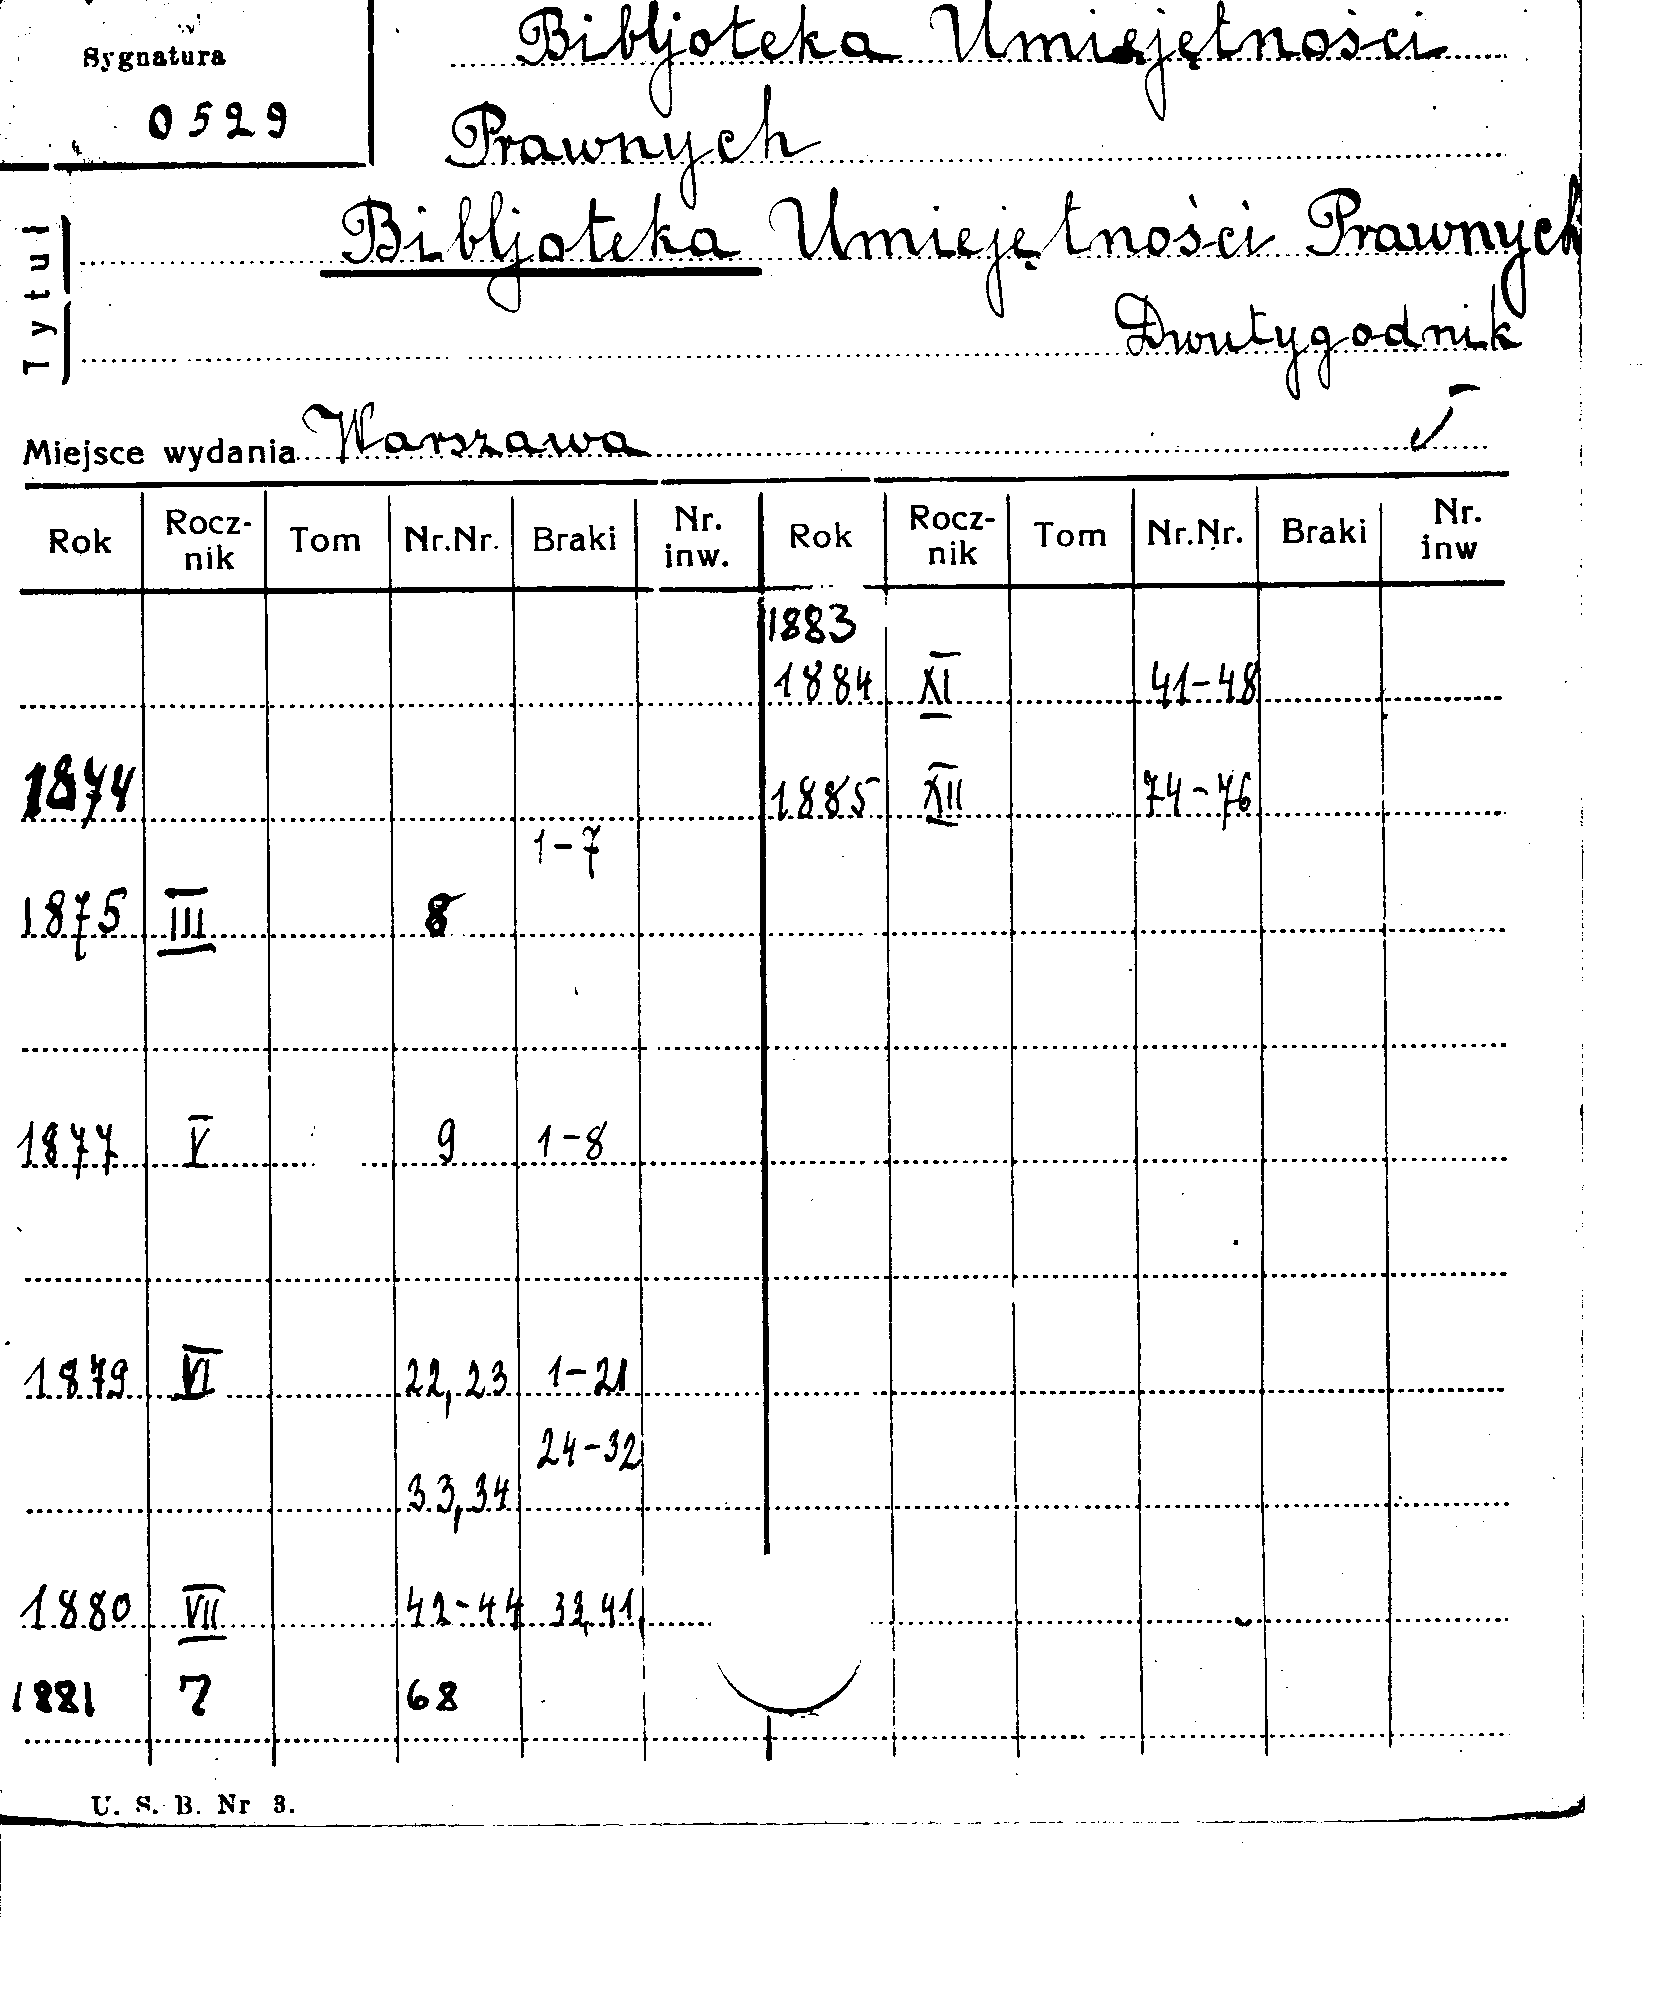 Sygnatura
0529
Bibljoteka Umiejętności
Prawnych
Tytuł
Bibljoteka Umiejętności Prawnych
Dwutygodnik
Miejsce wydania Warszawa
Rok Rocz-nik Tom Nr.Nr. Braki Nr. inw. Rok Rocz-nik Tom Nr.Nr. Braki Nr. inw
1883
1884 XI 41-48
1874 1885 XII 74-76
1-7
1875 III 8
1877 V 9 1-8
1879 VI 22,23 1-21
24-32
33,34
1880 VII 42-44 33,41
1881 7 68
U. S. B. Nr 3.